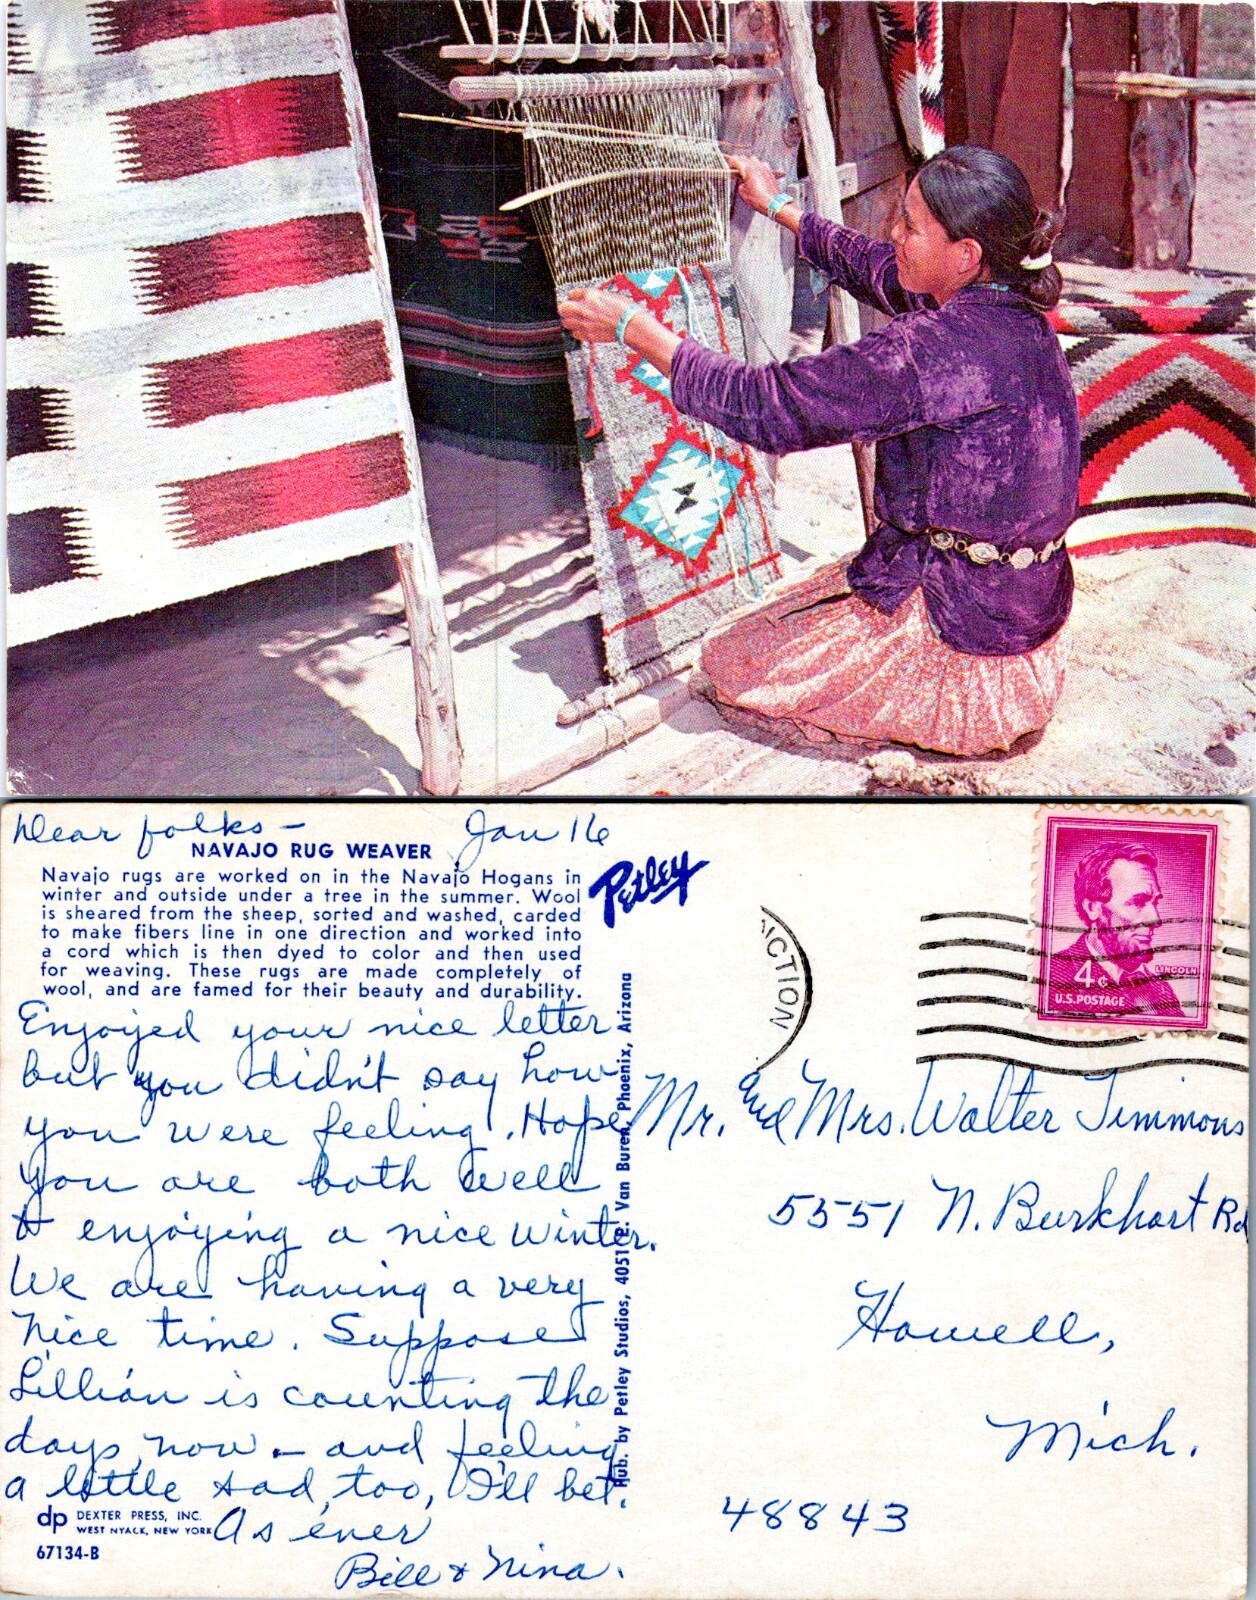 Dear folks - Jan 16
NAVAJO RUG WEAVER
Navajo rugs are worked on in the Navajo Hogans in
winter and outside under a tree in the summer. Wool
is sheared from the sheep, sorted and washed, carded
to make fibers line in one direction and worked into
a cord which is then dyed to color and then used
for weaving. These rugs are made completely of
wool, and are famed for their beauty and durability.
Enjoyed your nice letter
but you didn't say how
you were feeling. Hope
you are both well
& enjoying a nice winter.
We are having a very
nice time. Suppose
Lillian is counting the
days now - and feeling
a little sad, too, I'll bet.
As ever
Bill & Nina.
dp DEXTER PRESS, INC.
WEST NYACK, NEW YORK
67134-B
Petley
Pub. by Petley Studios, 4051 E. Van Buren, Phoenix, Arizona
ICTION
4¢ LINCOLN
U.S. POSTAGE
Mr. and Mrs. Walter Timmons
5551 N. Burkhart Rd
Howell,
Mich.
48843